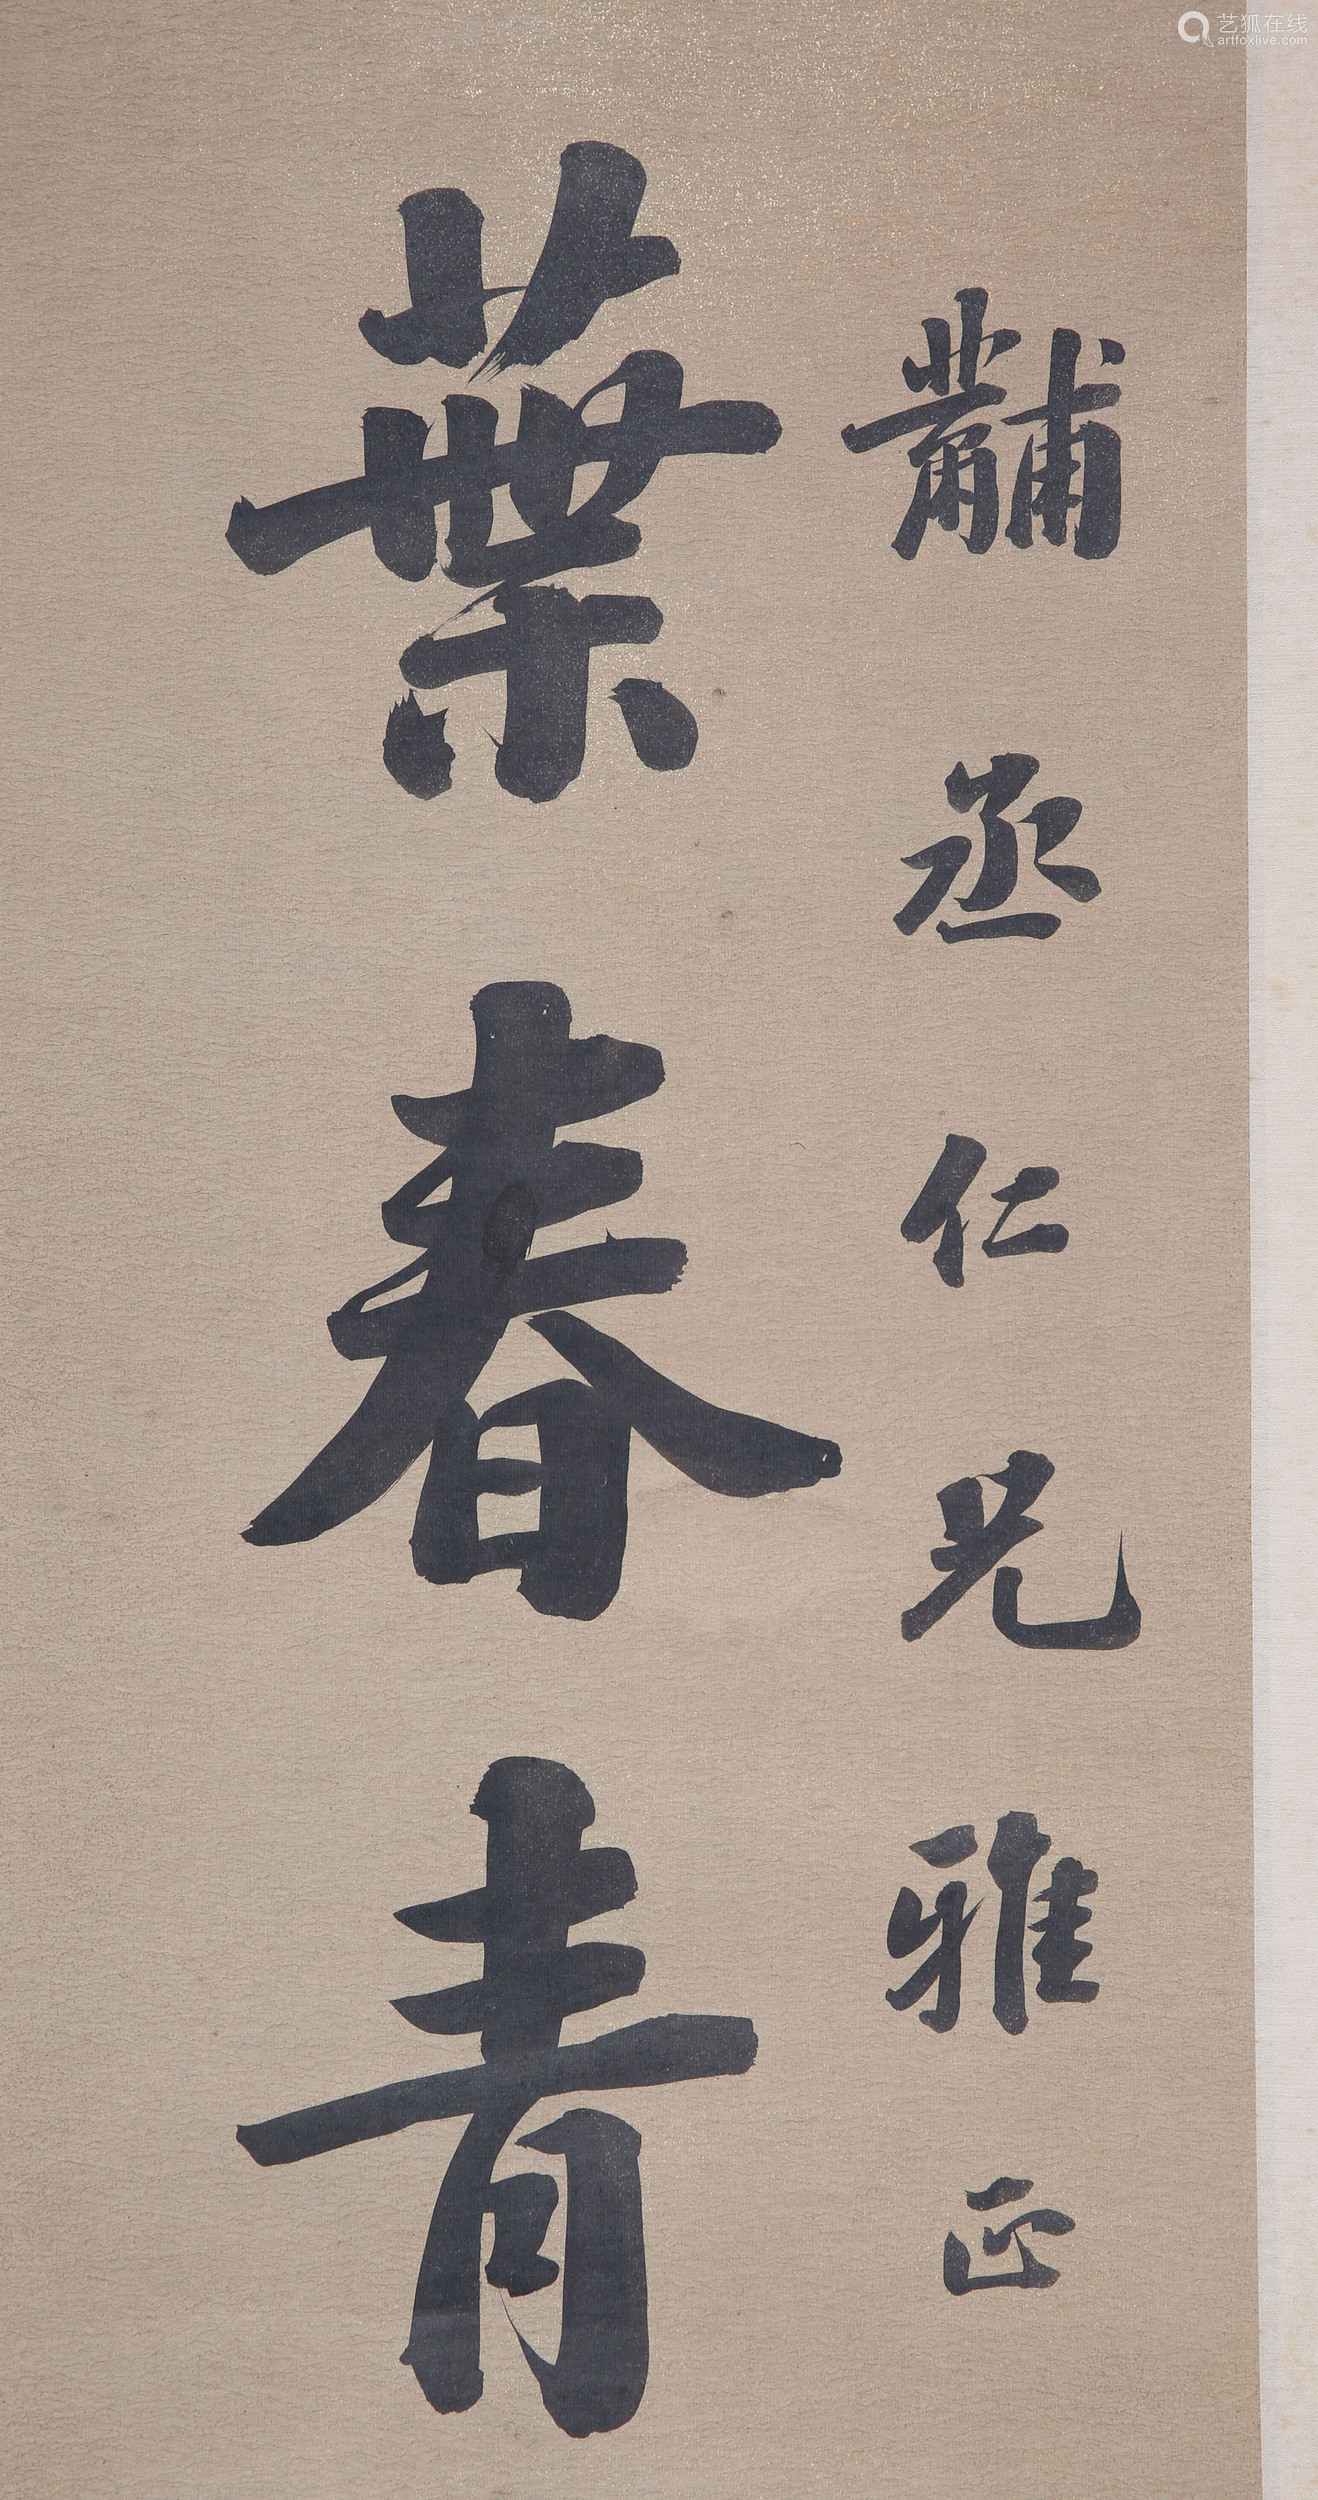 黼丞仁兄雅正
葉春青
艺狐在线
artfoxlive.com